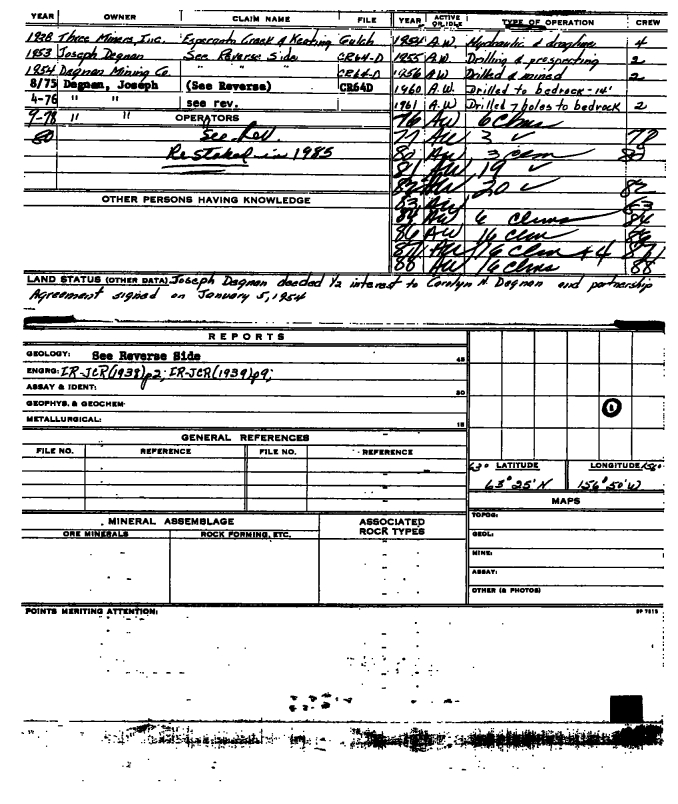 YEAR OWNER CLAIM NAME FILE YEAR ACTIVE OR IDLE TYPE OF OPERATION CREW
1938 Three Miners, Inc. Esperanto Creek & Keating Gulch 1954 A.W. Hydraulic & dragline 4
1953 Joseph Degnan See Reverse Side CR64-D 1955 A.W. Drilling & prospecting 2
1954 Degnan Mining Co. " " CR64-D 1956 A.W. Drilled & mined 2
8/75 Degnan, Joseph (See Reverse) CR64D 1960 A.W. Drilled to bedrock - 14'
4-76 " " see rev. 1961 A.W. Drilled 7 holes to bedrock 2
9-78 " " OPERATORS 76 AW 6 Clms
80 See Rev 77 AW 3 ✓ 78
Restaked in 1985 80 AW 3 clm
81 AW 19 ✓
82 AW 20 ✓ 82
OTHER PERSONS HAVING KNOWLEDGE 83 AW
84 AW 6 Clms 84
86 AW 16 Clm 86
87 AW 16 Clm + 4 87
88 AW 16 Clms 88
LAND STATUS (OTHER DATA) Joseph Degnan deeded 1/2 interest to Carolyn N. Degnan and partnership
Agreement signed on January 5, 1954
REPORTS
GEOLOGY: See Reverse Side 45
ENGRG: IR-JCR(1938)p2; IR-JCR(1939)p9;
ASSAY & IDENT: 30
GEOPHYS. & GEOCHEM:
METALLURGICAL: 15
GENERAL REFERENCES
FILE NO. REFERENCE FILE NO. REFERENCE
63° LATITUDE LONGITUDE 156°
63° 25' N 156° 50' W
MAPS
MINERAL ASSEMBLAGE ASSOCIATED ROCK TYPES
ORE MINERALS ROCK FORMING, ETC.
TOPOG:
GEOL:
MINE:
ASSAY:
OTHER (& PHOTOS)
POINTS MERITING ATTENTION: